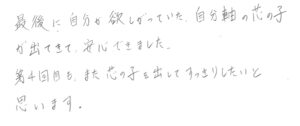 最後に、自分が欲しがっていた、自分軸の芯の子
が出てきて、安心できました。
第4回目も、また芯の子を出してすっきりしたいと
思います。